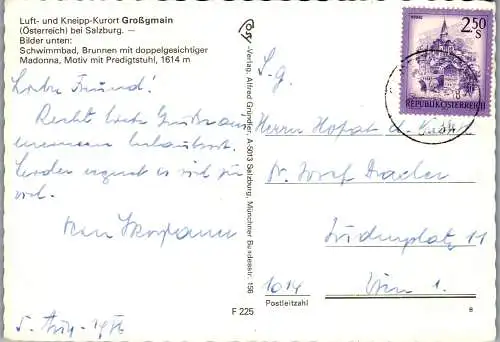 Luft- und Kneipp-Kurort Großgmain
(Österreich) bei Salzburg. —
Bilder unten:
Schwimmbad, Brunnen mit doppelgesichtiger
Madonna, Motiv mit Predigtstuhl, 1614 m
Lieber Freund!
Recht liebe Grüße aus
meinem Urlaubsort.
Leider regnet es viel zu
-Verlag, Alfred Gründler, A-5013 Salzburg, Münchner Bundesstr. 156
F 225
2.50
S
REPUBLIK ÖSTERREICH
S.g.
Herrn Hofrat
Dr. Josef
Judenplatz 11
1014 Wien 1.
Postleitzahl
8